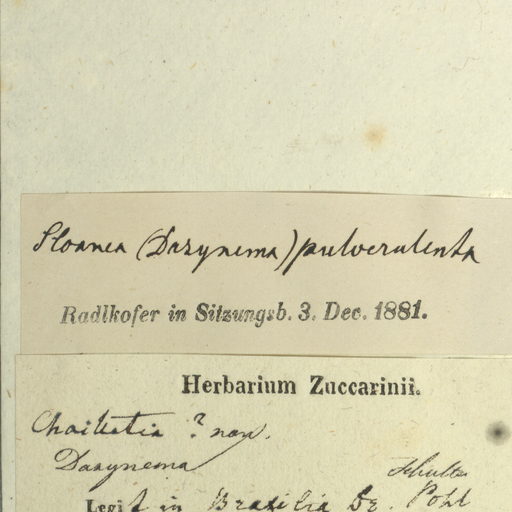 Sloanea (Dasynema) pulverulenta
Radlkofer in Sitzungsb. 3. Dec. 1881.
Herbarium Zuccarinii.
Chailletia ? nov.
Dasynema
Schultz
Legit in Brasilia Dr. Pohl